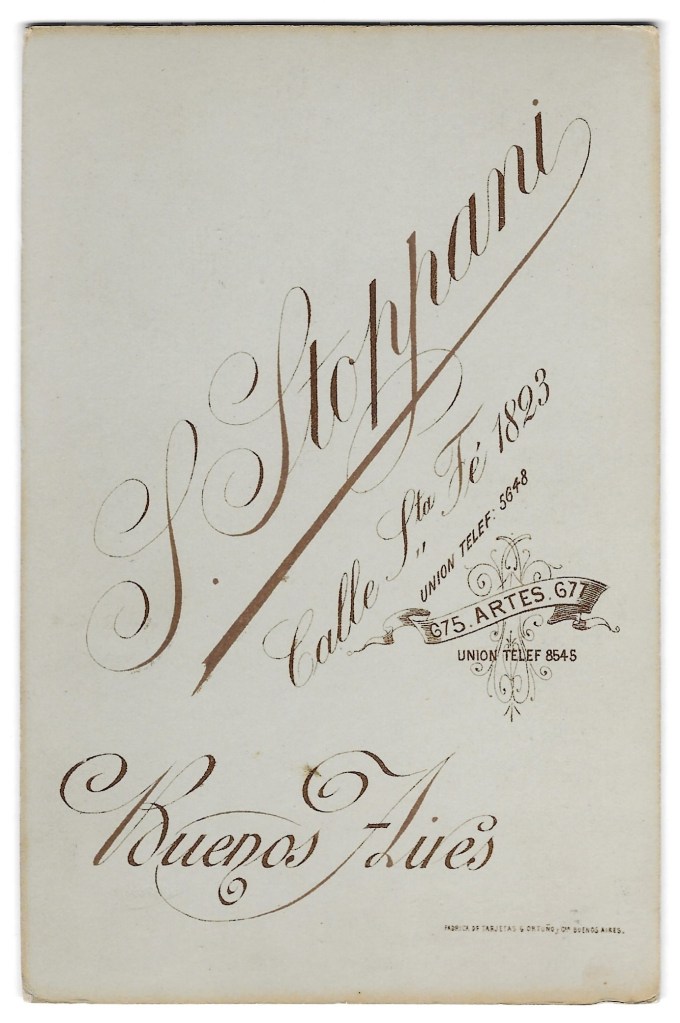 S. Stoppani
Calle Sta,, Fé 1823
UNION TELEF: 5648
675. ARTES. 677
UNION TELEF 8545
Buenos Aires
FABRICA DE TARJETAS G ORTUÑO y Cia BUENOS AIRES.